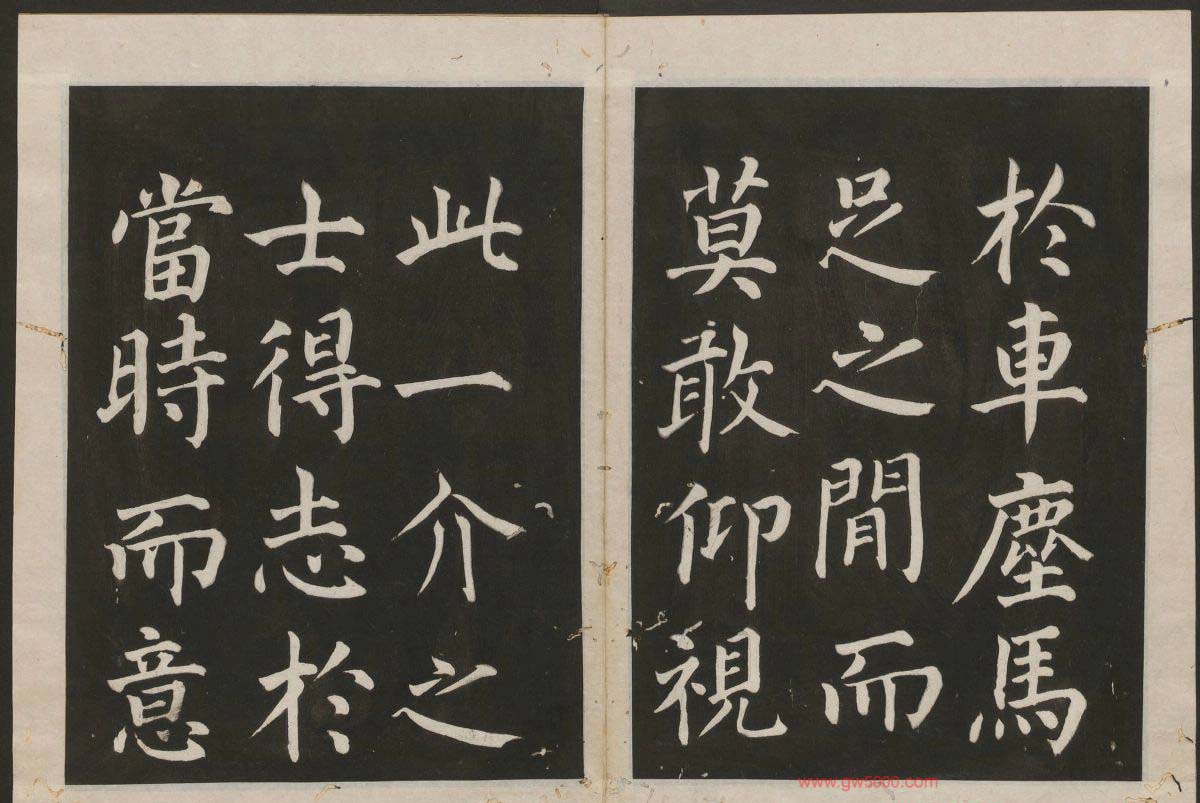 於車塵馬
足之間而
莫敢仰視
此一介之
士得志於
當時而意
www.gw5000.com